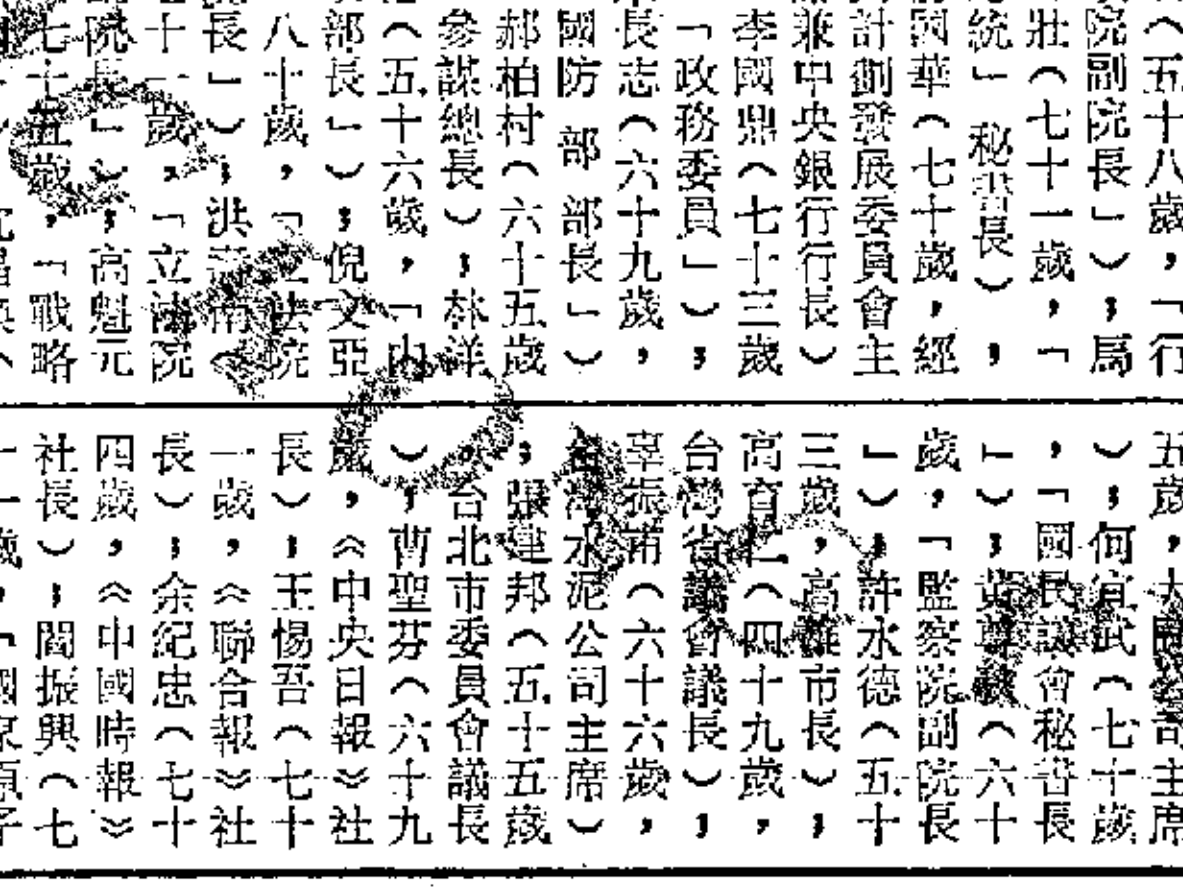 （五十八歲，「行
院副院長」）；馬
壯（七十一歲，「
統」秘書長）；
國華（七十歲，經
計劃發展委員會主
兼中央銀行行長）
李國鼎（七十三歲
「政務委員」）；
長志（六十九歲，
國防部部長」）
郝柏村（六十五歲
參謀總長）；林洋
（五十六歲，「內
部長」）；倪文亞
八十歲，「立法院
長」）；洪壽南（
十一歲，「立法院
院長」）；高魁元
七十五歲，「戰略
五歲，大同公司主席
）；何宜武（七十歲
，「國民議會秘書長
」）；黃尊秋（六十
歲，「監察院副院長
」）；許水德（五十
三歲，高雄市長）；
高育仁（四十九歲，
台灣省議會議長）；
辜振甫（六十六歲，
台灣水泥公司主席）
；張建邦（五十五歲
，台北市委員會議長
）；曹聖芬（六十九
歲，《中央日報》社
長）；王惕吾（七十
一歲，《聯合報》社
長）；余紀忠（七十
四歲，《中國時報》
社長）；閻振興（七